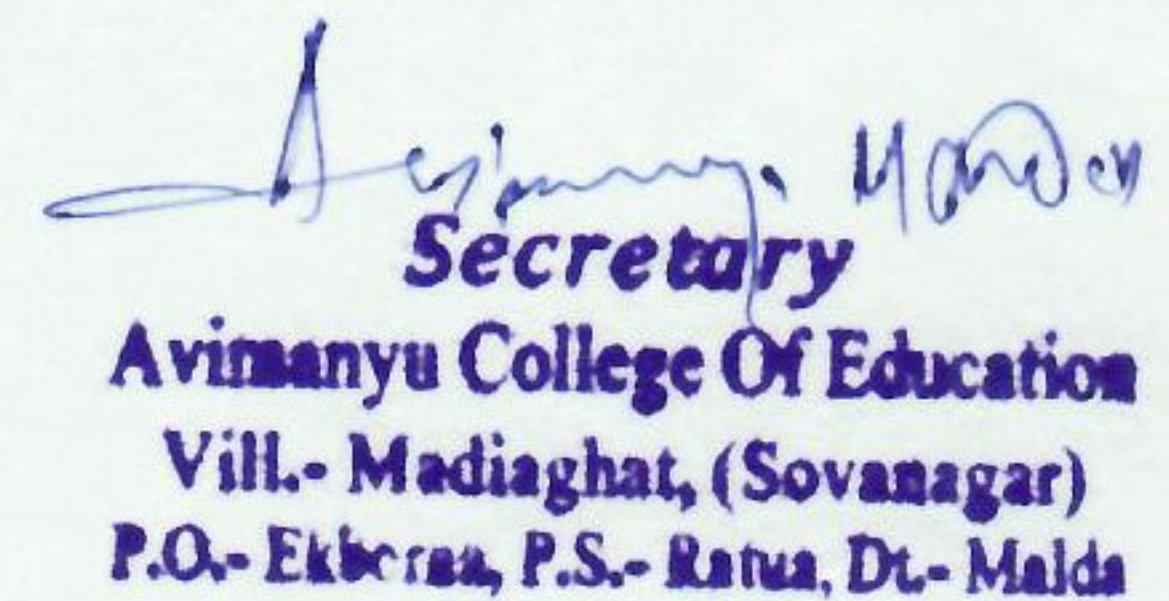 Secretary
Avimanyu College Of Education
Vill.- Madiaghat, (Sovanagar)
P.O.- Ekborna, P.S.- Ratua, Dt.- Malda